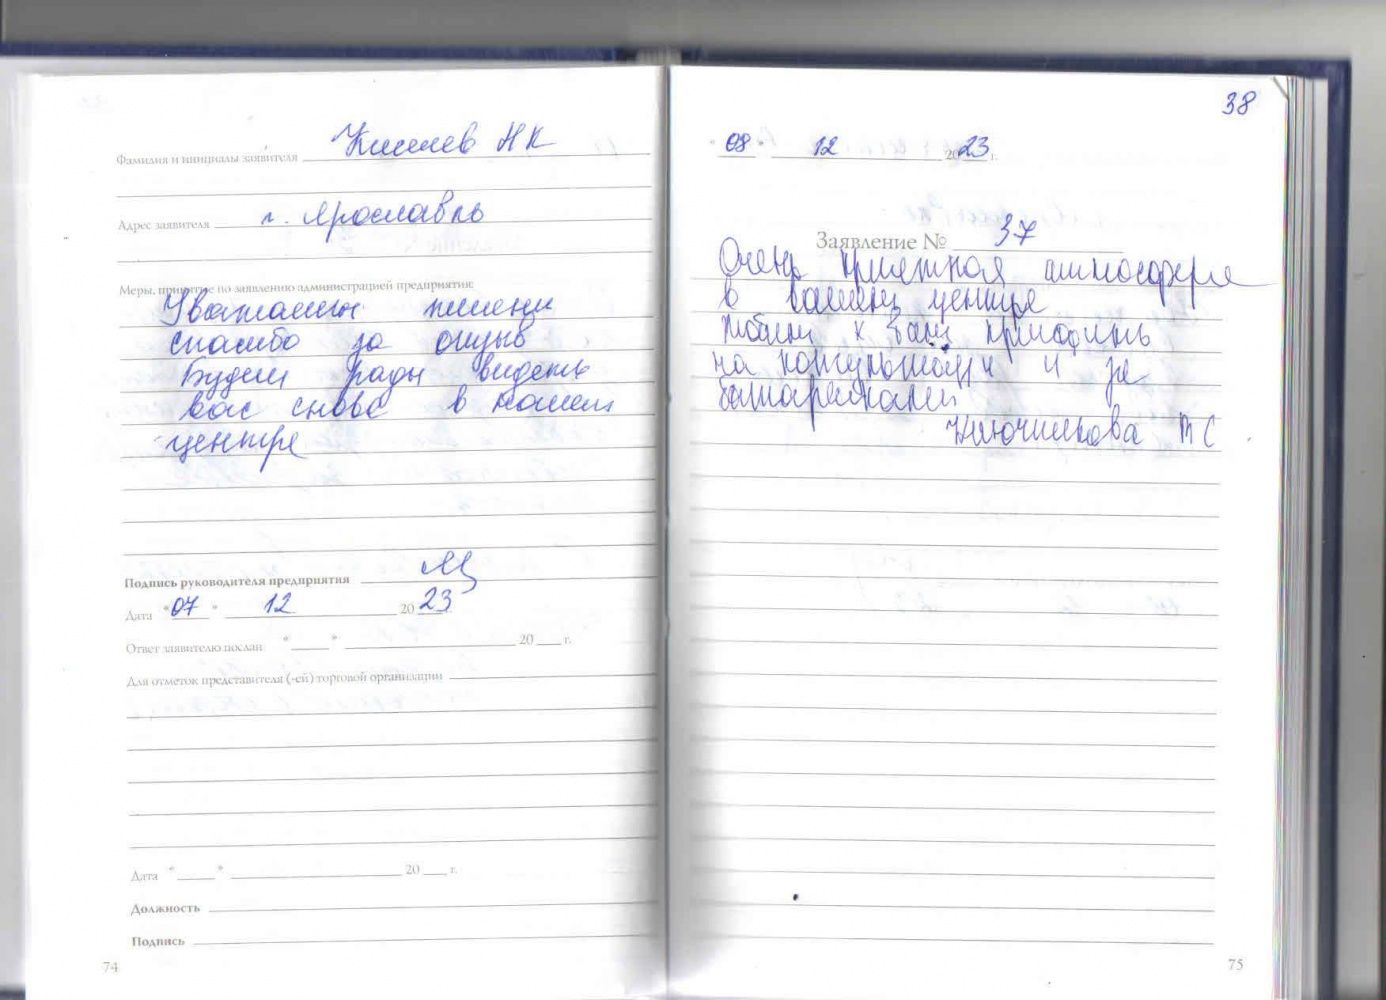 Фамилия и инициалы заявителя Н К
Адрес заявителя г. Ярославль
Меры, принятые по заявлению администрацией предприятия:
Уважаемый
спасибо за отзыв
Будем рады видеть
вас снова в нашем
центре
Подпись руководителя предприятия
Дата "07" 12 2023
Ответ заявителю послан " " 20 г.
Для отметок представителя (-ей) торговой организации
Дата " " 20 г.
Должность
Подпись
74
38
"08" 12 2023 г.
Заявление № 37
Очень приятная атмосфера
в вашем центре
к Вам приходить
на консультации и за
батарейками
Ключникова Т С
75